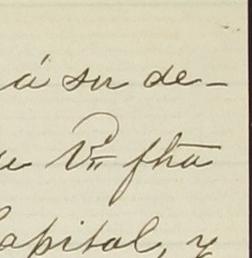 á su de-
V. fha
Capital, y